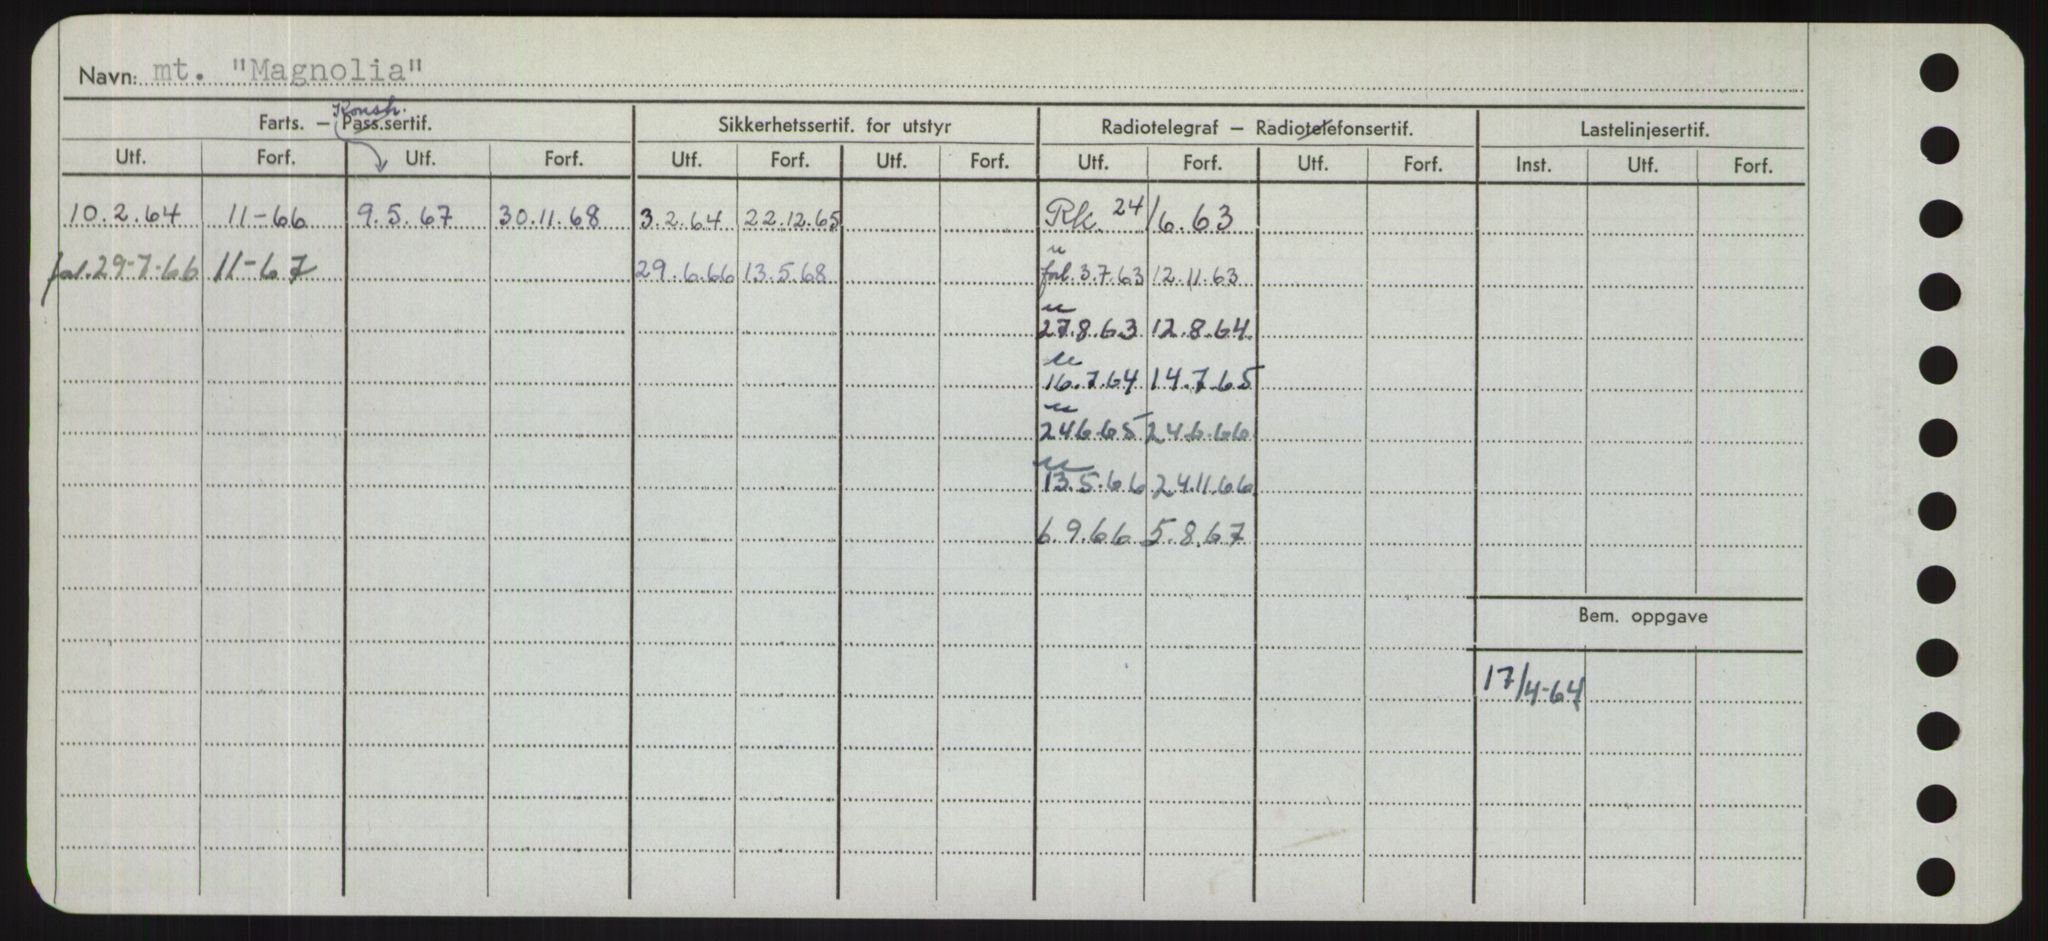 Navn: mt. "Magnolia"
Konstr.
Farts. — Pass.sertif. Sikkerhetssertif. for utstyr Radiotelegraf — Radiotelefonsertif. Lastelinjesertif.
Utf. Forf. Utf. Forf. Utf. Forf. Utf. Forf. Utf. Forf. Utf. Forf. Inst. Utf. Forf.
10.2.64 11-66 9.5.67 30.11.68 3.2.64 22.12.65 Rk 24/6.63
forl. 29-7-66 11-67 29.6.66 13.5.68 " forl. 3.7.63 12.11.63
" 27.8.63 12.8.64
" 16.7.64 14.7.65
" 24.6.65 24.6.66
" 13.5.66 24.11.66
6.9.66 5.8.67
Bem. oppgave
17/4-64